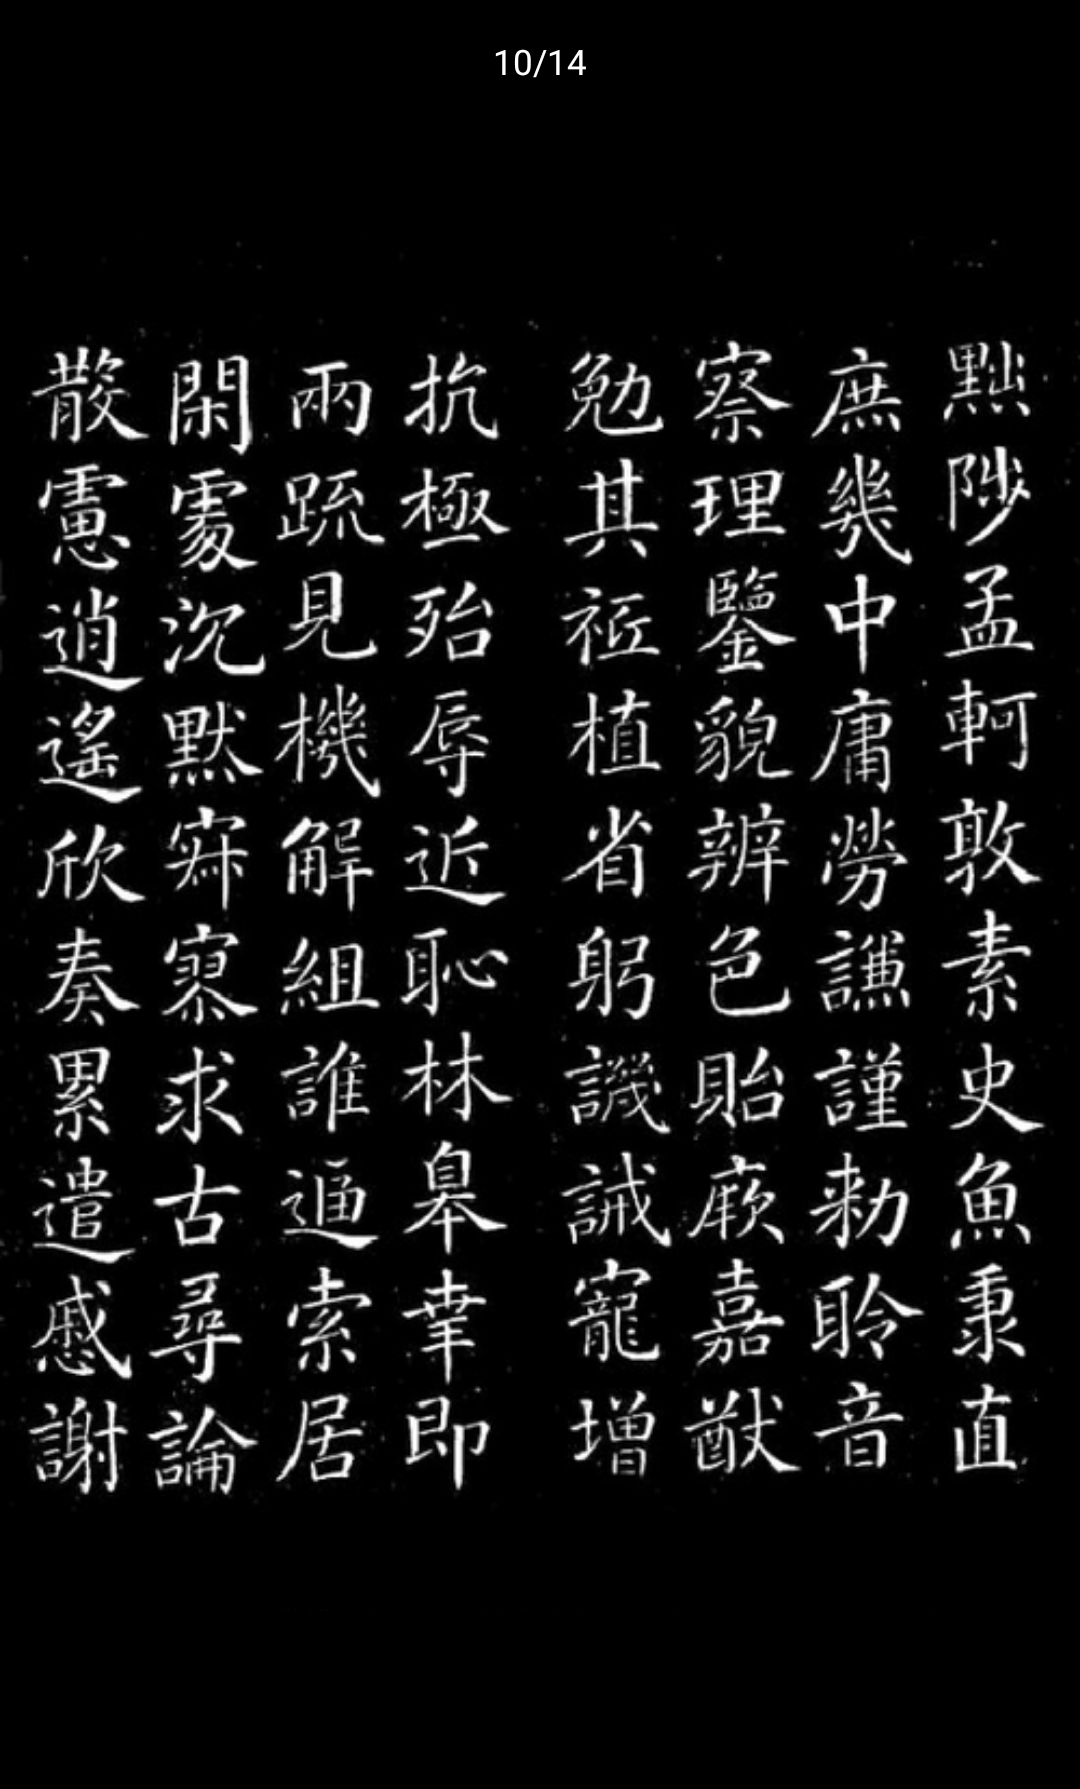 10/14
黜陟孟軻敦素史魚秉直
庶幾中庸勞謙謹勑聆音
察理鑒貌辨色貽厥嘉猷
勉其祗植省躬譏誡寵增
抗極殆辱近恥林皋幸即
兩疏見機解組誰逼索居
閑處沉默寂寥求古尋論
散慮逍遙欣奏累遣慼謝